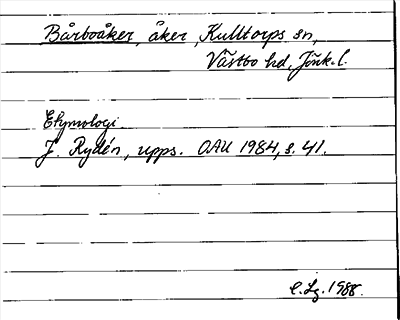 Bårboåker, åker, Kulltorps sn,
Västbo hd, Jönk. l.
Etymologi.
J. Rydén, upps. OAU 1984, s. 41.
C. Lg. 1988.